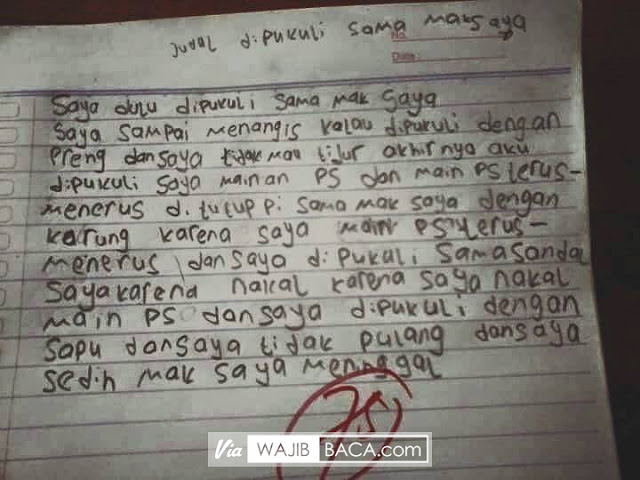 Judul dipukuli sama mak saya
No.
Date:
Saya dulu dipukuli sama mak saya
Saya sampai menangis kalau dipukuli dengan
Preng dan saya tidak mau tidur akhirnya aku
dipukuli saya mainan PS dan main PS terus-
menerus di tutuppi sama mak saya dengan
karung karena saya main PS terus-
menerus dan saya dipukuli sama sandal
Saya karena nakal karena saya nakal
main PS dan saya dipukuli dengan
Sapu dan saya tidak pulang dan saya
sedih mak saya meninggal
75
Via WAJIB BACA.com